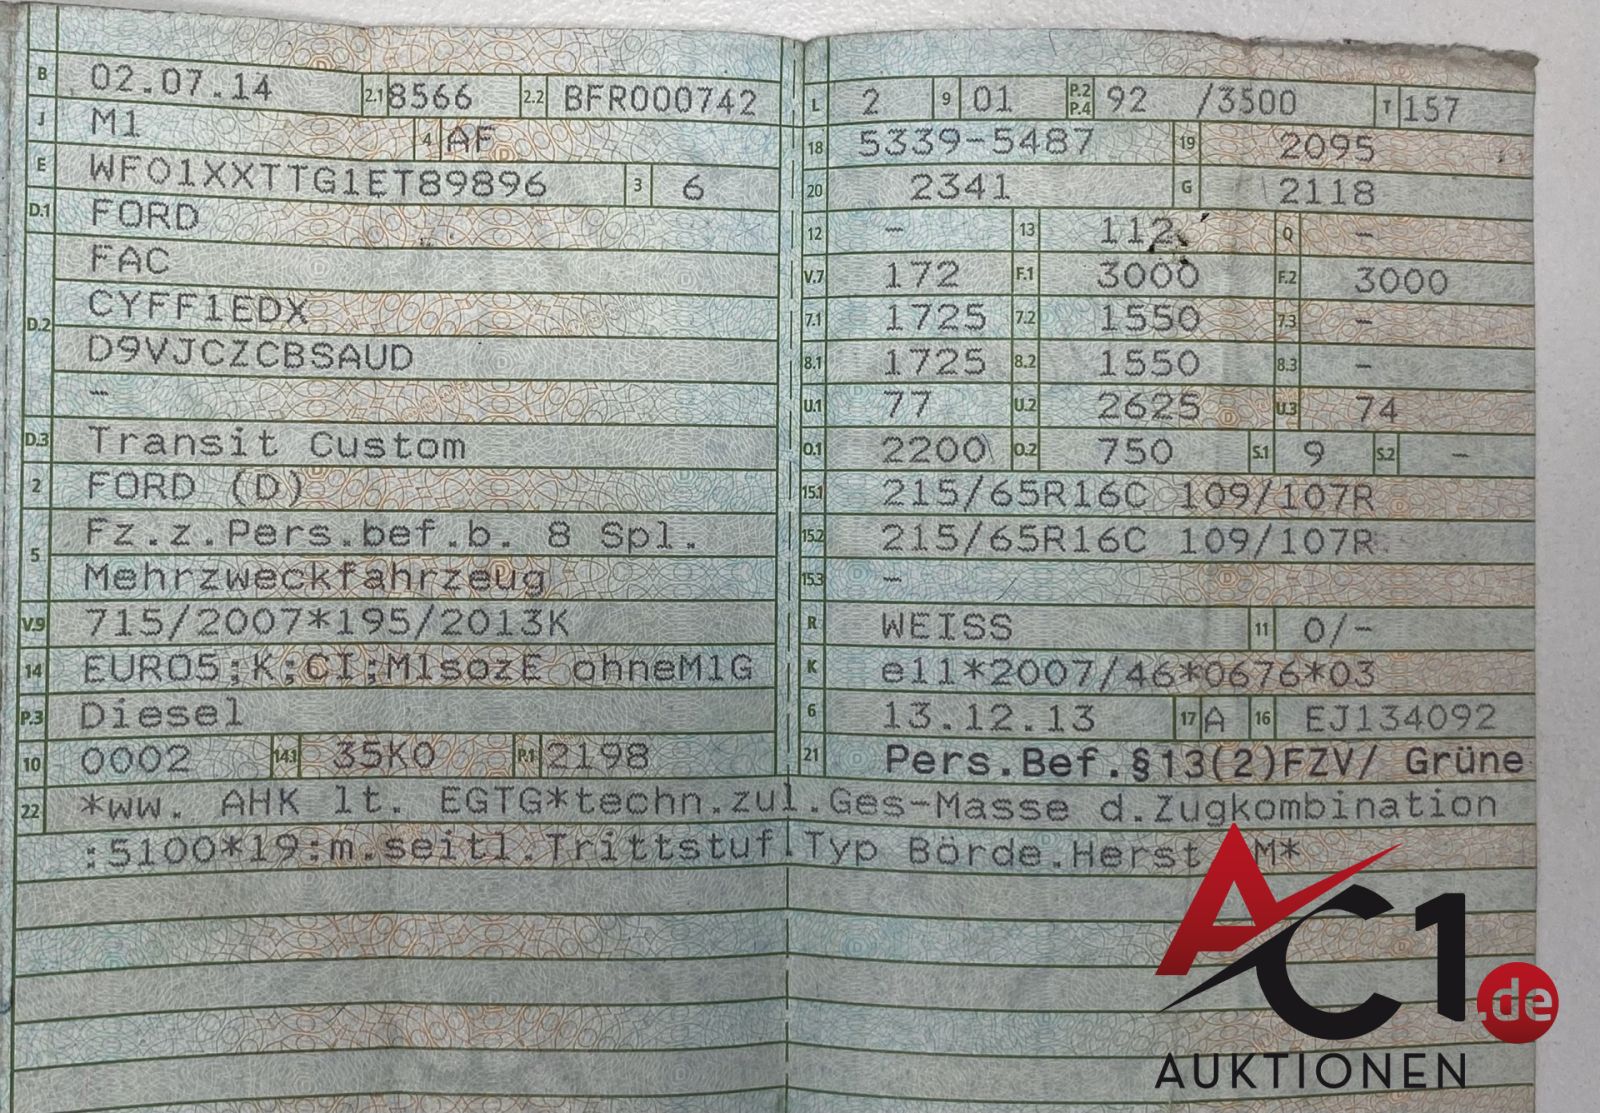 B 02.07.14 2.1 8566 2.2 BFR000742
J M1 4 AF
E WF01XXTTG1ET89896 3 6
D.1 FORD
D.2 FAC
CYFF1EDX
D9VJCZCBSAUD
–
D.3 Transit Custom
2 FORD (D)
5 Fz.z.Pers.bef.b. 8 Spl.
Mehrzweckfahrzeug
V.9 715/2007*195/2013K
14 EURO5;K;CI;M1sozE ohneM1G
P.3 Diesel
10 0002 14.1 35K0 P.1 2198
L 2 9 01 P.2 P.4 92 /3500 T 157
18 5339-5487 19 2095
20 2341 G 2118
12 – 13 112 Q –
V.7 172 F.1 3000 F.2 3000
7.1 1725 7.2 1550 7.3 –
8.1 1725 8.2 1550 8.3 –
U.1 77 U.2 2625 U.3 74
O.1 2200 O.2 750 S.1 9 S.2 –
15.1 215/65R16C 109/107R
15.2 215/65R16C 109/107R
15.3 –
R WEISS 11 0/-
K e11*2007/46*0676*03
6 13.12.13 17 A 16 EJ134092
21 Pers.Bef.§13(2)FZV/ Grüne
22 *ww. AHK lt. EGTG*techn.zul.Ges-Masse d.Zugkombination
:5100*19:m.seitl.Trittstuf.Typ Börde.Herst M*
AC1.de
AUKTIONEN